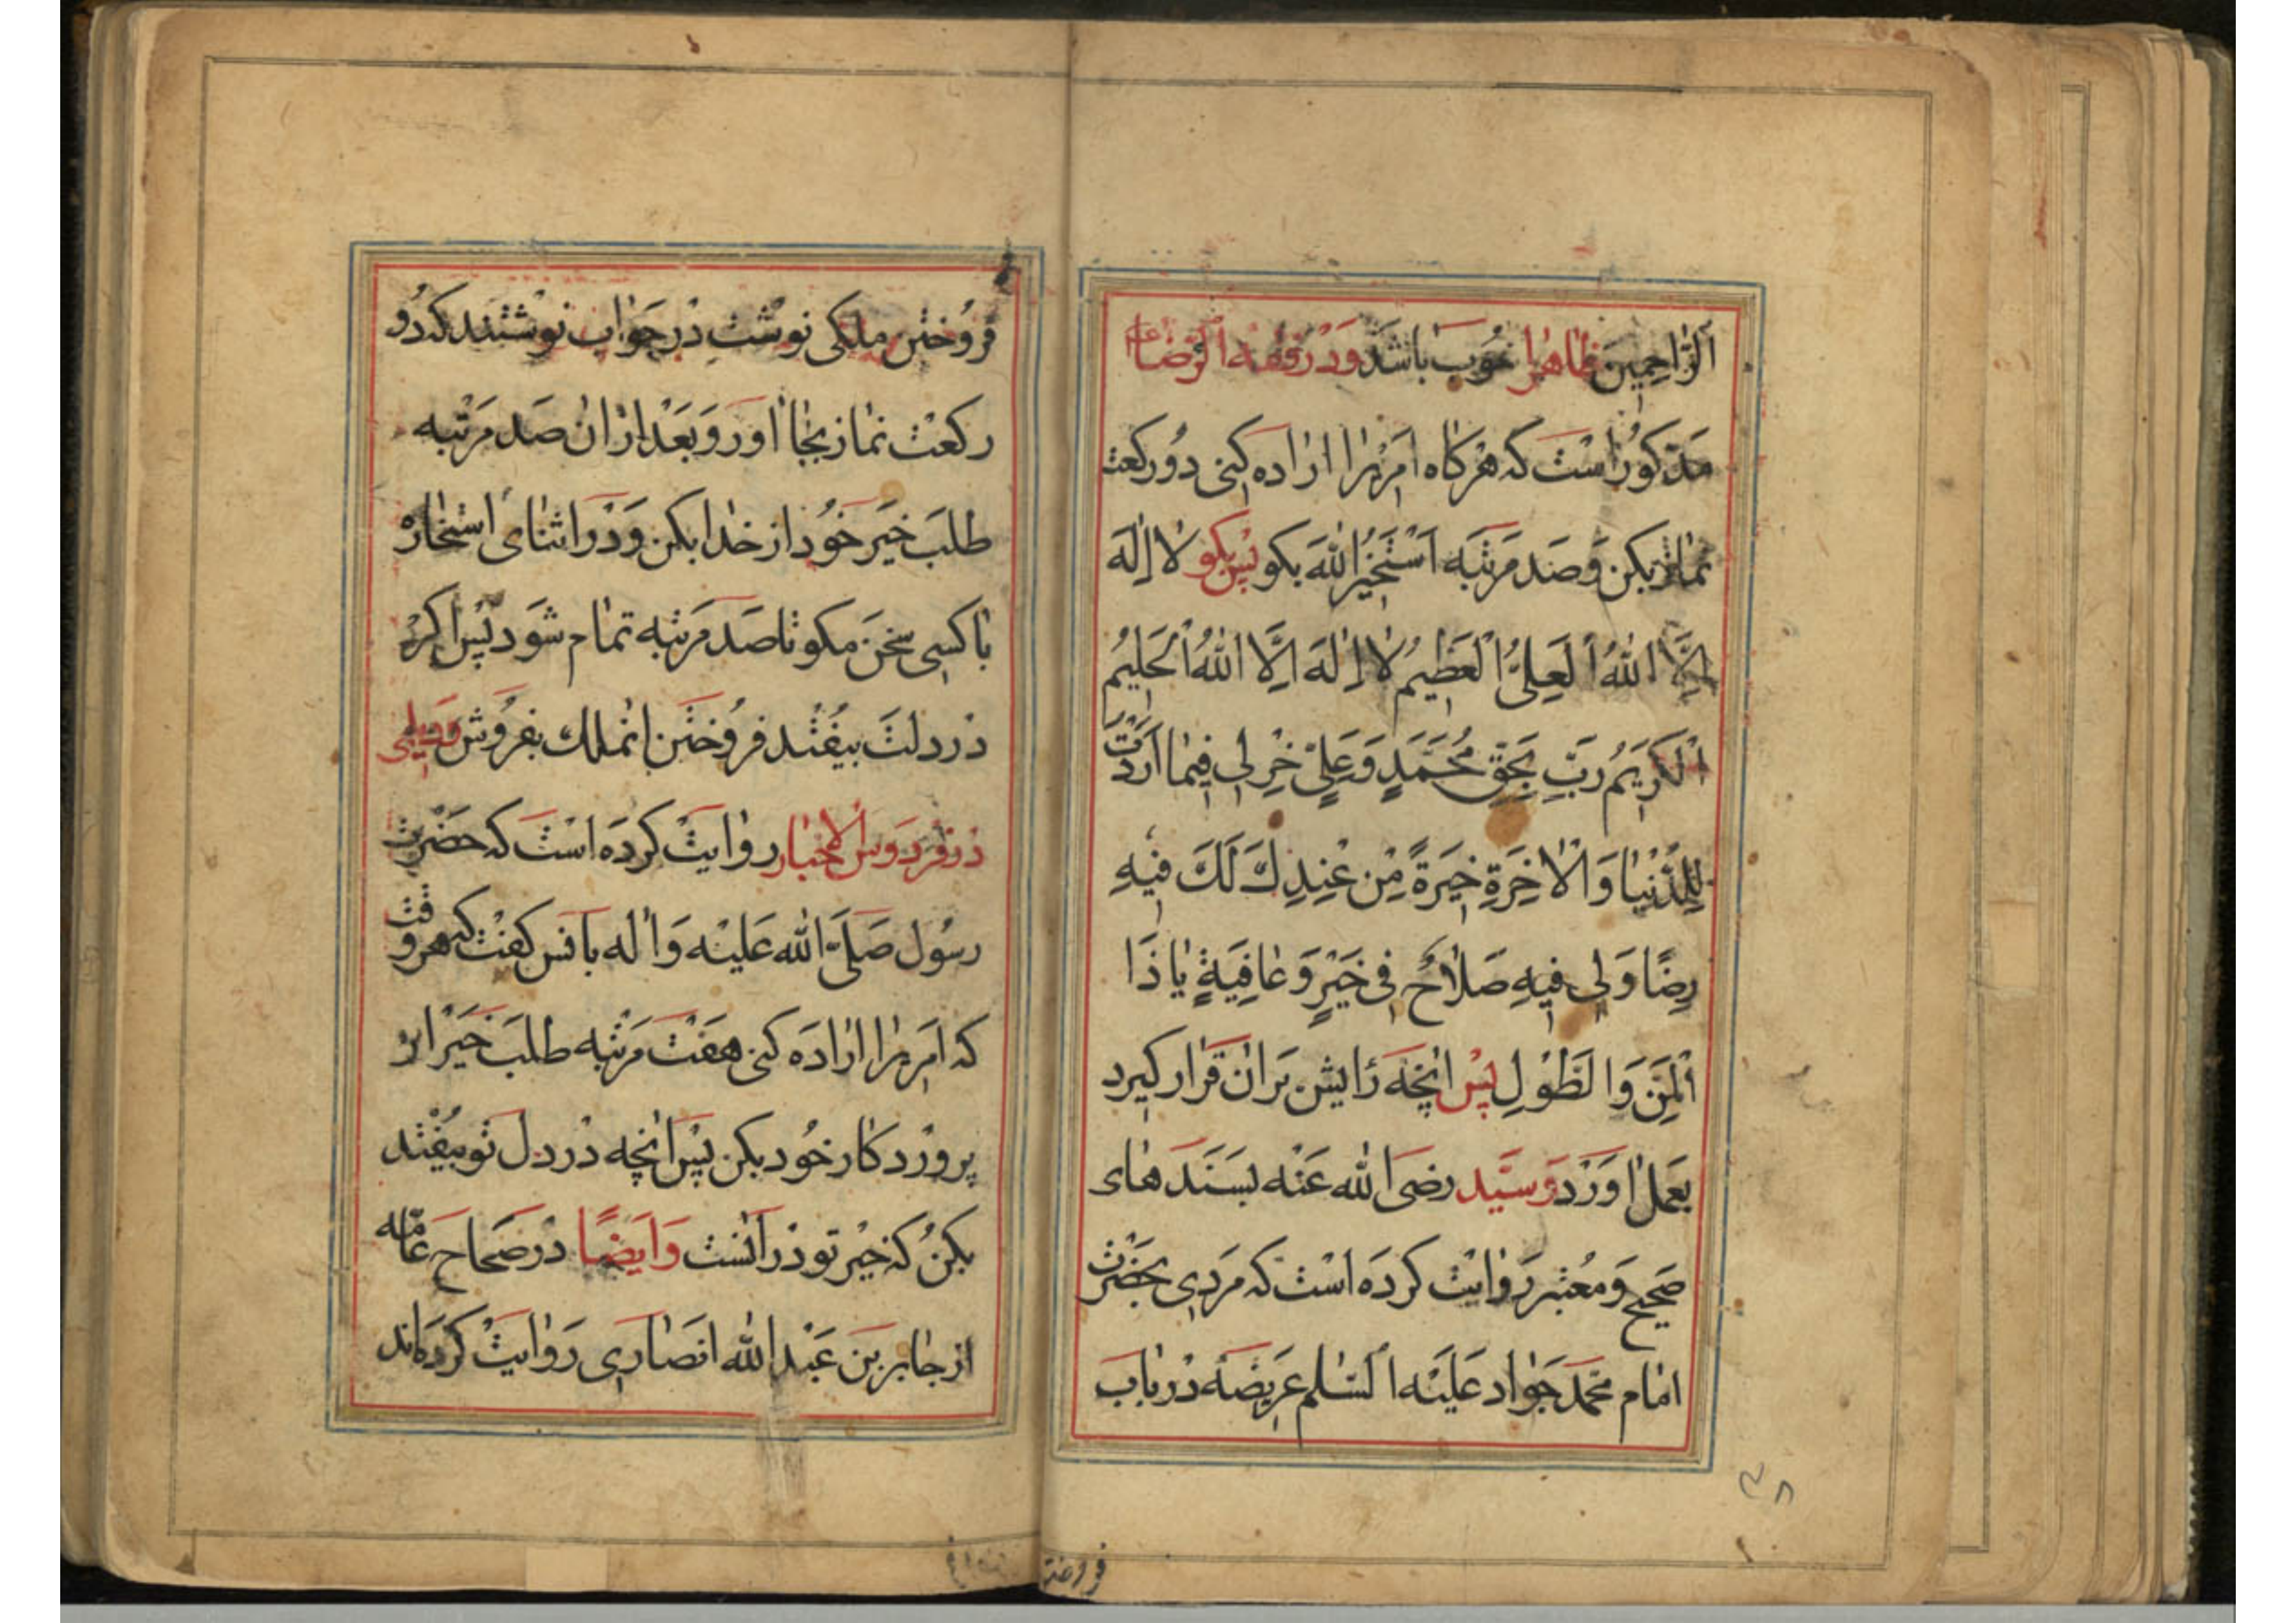 اَلرّٰاحِمِينَ ظاهرا خُوب باشد وَدَر فقه الرّضا ع
مَذكوُر است كه هركاه امريرا اراده كنى دو ركعت
نماز بكن وَصَد مَرتبَه اَسْتَخيرُ اللّٰهَ بكو پس بكو لا اِلٰهَ
اِلَّا اللّٰهُ الْعَلِىُّ الْعَظِيمُ لا اِلٰهَ اِلَّا اللّٰهُ الْحَلِيمُ
الْكَرِيمُ رَبِّ بِحَقِّ مُحَمَّدٍ وَعَلِىٍّ خِرْلى فِيمٰا اَرَدْتُ
لِلدُّنْيٰا وَالْاٰخِرَةِ خِيَرَةً مِنْ عِنْدِكَ لَكَ فِيْهِ
رِضًا وَلِى فِيهِ صَلاٰحٌ فى خَيْرٍ وَعٰافِيَةٍ يٰا ذَا
الْمَنِّ وَالطَّوْلِ پس انچه رٰايش بَران قَرار كيرد
بعَمل اوَرَد وَسَيّد رضى الله عَنْه بسَنَدَهاى
صَحيح وَمعُتبر رَوٰايت كردَه است كه مَردى بحَضْرت
امٰام محمّد جَوٰاد عَليْه السّلم عَريضَه در بٰاب
فرُوختن ملكى نوشت در جَوٰاب نوشتند كه دُو
ركعت نماز بجٰا اور وَبَعْد ازان صَد مَرْتبه
طلبَ خيَر خوُد از خدٰا بكن وَدر اثنٰاى استخاره
بٰا كسى سخن مكو تا صَد مَرتبه تمٰام شوَد پس اكر
در دلت بيفُتد فروُختن انملك بفروُش وَديلمى
در فردَوس الاخبار روٰايت كردَه است كه حَضْرت
رسوُل صَلَّى الله عَليْه وَاٰله بانس كفت كه هر وقت
كه امريرا ارٰادَه كنى هفت مَرْتبه طلبَ خيَر از
پروَردكار خوُد بكن پس انچه در دل توُ بيفُتد
بكنُ كه خيْر تو دَر آنست وَايضًا در صحَاح عٰامّه
از جٰابر بن عَبْد الله انصٰارى رَوٰايت كردَه‌اند
٣٨
فروختن